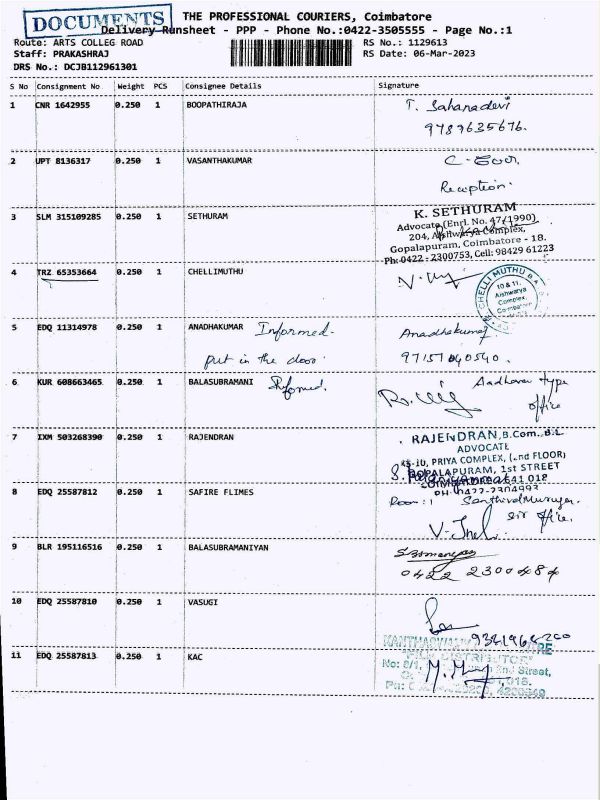 DOCUMENTS
THE PROFESSIONAL COURIERS, Coimbatore
Delivery Runsheet - PPP - Phone No.:0422-3505555 - Page No.:1
Route: ARTS COLLEG ROAD RS No.: 1129613
Staff: PRAKASHRAJ RS Date: 06-Mar-2023
DRS No.: DCJB112961301
S No Consignment No Weight PCS Consignee Details Signature
1 CNR 1642955 0.250 1 BOOPATHIRAJA T. Sahanadevi
9787635676.
2 UPT 8136317 0.250 1 VASANTHAKUMAR
Reception
3 SLM 315109285 0.250 1 SETHURAM K. SETHURAM
Advocate (Enrl. No. 47(1990)
204, Aishwarya Complex,
Gopalapuram, Coimbatore - 18.
Ph: 0422 - 2300753, Cell: 98429 61223
4 TRZ 65353664 0.250 1 CHELLIMUTHU
CHELLI MUTHU B.A.
10 & 11,
Aishwarya
Complex,
5 EDQ 11314978 0.250 1 ANADHAKUMAR Informed. Anadhakumar
put in the door 9715704054 0.
6 KUR 608663465 0.250 1 BALASUBRAMANI Aadhavan type
office
7 IXM 503268390 0.250 1 RAJENDRAN RAJENDRAN, B.Com., B.L
ADVOCATE
PRIYA COMPLEX, (2nd FLOOR)
GOPALAPURAM, 1st STREET
COIMBATORE-641 018
PH: 0422-2304993
8 EDQ 25587812 0.250 1 SAFIRE FLIMES Room: 1
office.
9 BLR 195116516 0.250 1 BALASUBRAMANIYAN
0422 2300484
10 EDQ 25587810 0.250 1 VASUGI
11 EDQ 25587813 0.250 1 KAC
"FILM DISTRIBUTOR"
No: 8/1, 2nd Street,